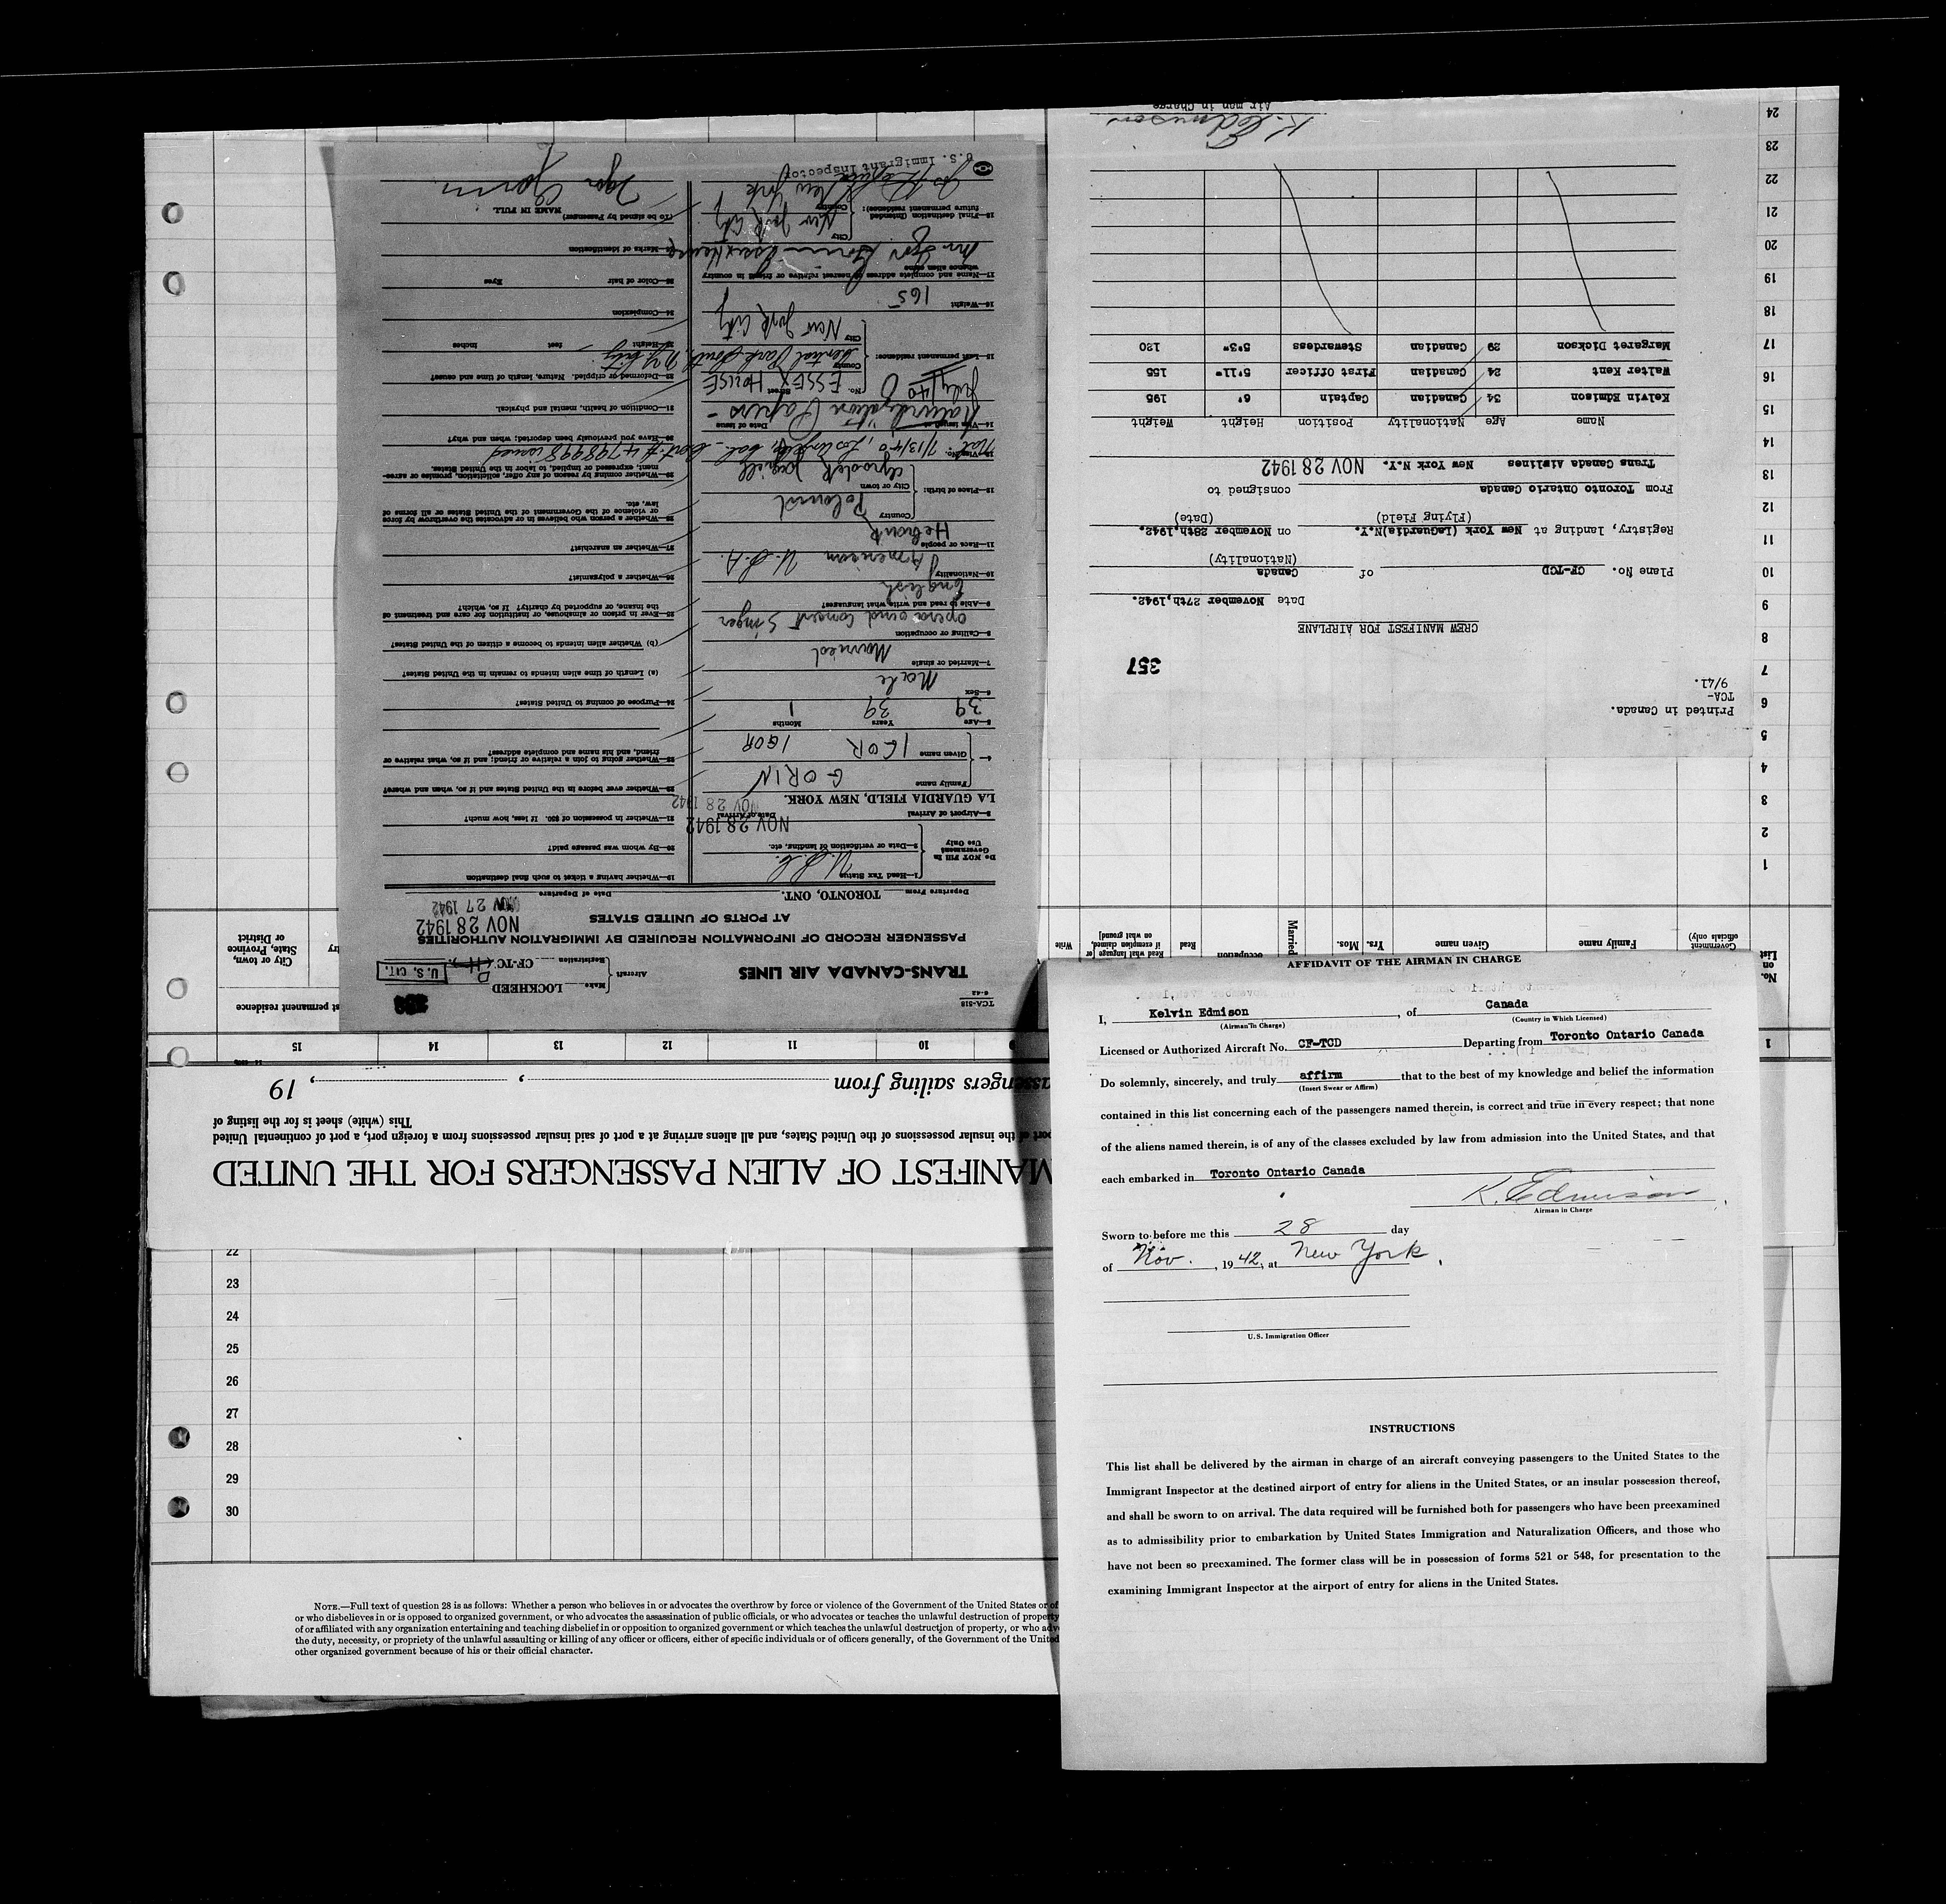 TCA-518
6-42
TRANS-CANADA AIR LINES
Aircraft
Make LOCKHEED
Registration CF-TC D
U. S. CIT.
PASSENGER RECORD OF INFORMATION REQUIRED BY IMMIGRATION AUTHORITIES
AT PORTS OF UNITED STATES
NOV 28 1942
NOV 27 1942
Departure From TORONTO, ONT. Date of Departure
Do NOT Fill In
Government
Use Only
1—Head Tax Status U.S.C.
2—Data or verification of landing, etc.
NOV 28 1942
3—Airport of Arrival Date of Arrival
LA GUARDIA FIELD, NEW YORK. NOV 28 1942
4—
Family name GORIN
Given name IGOR IGOR
5—Age 39 Years 39 Months 1
6—Sex Male
7—Married or single Married
8—Calling or occupation opera and Concert Singer
9—Able to read and write what languages? English
10—Nationality American U.S.A.
11—Race or people Hebrew
12—Place of birth:
Country Poland
City or town Grodek
13—Visa No. Nat. 7/13/40, Los Angeles, Cal. Cert. # 4798998 issued
14—Visa issued at Date of issue
Naturalization Papers -
July/40
15—Last permanent residence:
No. Street ESSEX HOUSE
Country Central Park South, N.Y. City
City New York City
16—Weight 165
17—Name and complete address of nearest relative or friend in country
whence alien came
Mrs. Igor Gorin Essex House
18—Final destination (Intended
future permanent residence):
City New York City
Country New York
U.S. Immigrant Inspector
19—Whether having a ticket to such final destination
20—By whom was passage paid?
21—Whether in possession of $50. If less, how much?
22—Whether ever before in the United States and if so, when and where?
23—Whether going to join a relative or friend; and if so, what relative or
friend, and his name and complete address?
24—Purpose of coming to United States?
(a) Length of time alien intends to remain in the United States?
(b) Whether alien intends to become a citizen of the United States?
25—Ever in prison or almshouse, or institution for care and treatment of
the insane, or supported by charity? If so, which?
26—Whether a polygamist?
27—Whether an anarchist?
28—Whether a person who believes in or advocates the overthrow by force
or violence of the Government of the United States or all forms of
law, etc.
29—Whether coming by reason of any offer, solicitation, promise or agree-
ment, expressed or implied, to labor in the United States.
30—Have you previously been deported; when and why?
31—Condition of health, mental and physical.
32—Deformed or crippled. Nature, length of time and cause?
33—Height feet inches
34—Complexion
35—Color of hair Eyes
36—Marks of identification
(To be signed by Passenger) NAME IN FULL
Igor Gorin
Printed in Canada.
TCA-
9/41.
357
CREW MANIFEST FOR AIRPLANE
Date November 27th,1942.
Plane No. CF-TCD of Canada
(Nationality)
Registry, landing at New York (LaGuardia)N.Y. on November 28th,1942.
(Flying Field) (Date)
From Toronto Ontario Canada consigned to
Trans Canada Airlines New York N.Y. NOV 28 1942
Name Age Nationality Position Height Weight
Kelvin Edmison 34 Canadian Captain 6' 195
Walter Kent 24 Canadian First Officer 5'11" 155
Margaret Dickson 29 Canadian Stewardess 5'3" 120
K. Edmison
Air man in Charge
MANIFEST OF ALIEN PASSENGERS FOR THE UNITED
port of the insular possessions of the United States, and all aliens arriving at a port of said insular possessions from a foreign port, a port of continental United
This (white) sheet is for the listing of
assengers sailing from , , 19
9 10 11 12 13 14 15
1
No.
on
List
Government
officials only)
Family name
Given name
Yrs. Mos.
Married
occupation
Read
Read what language or
if exemption claimed,
on what ground]
Write
st permanent residence
City or town,
State, Province
or District
1
2
3
4
5
6
7
8
9
10
11
12
13
14
15
16
17
18
19
20
21
22
23
24
AFFIDAVIT OF THE AIRMAN IN CHARGE
I, Kelvin Edmison, of Canada
(Airman In Charge) (Country in Which Licensed)
Licensed or Authorized Aircraft No. CF-TCD Departing from Toronto Ontario Canada
Do solemnly, sincerely, and truly affirm that to the best of my knowledge and belief the information
(Insert Swear or Affirm)
contained in this list concerning each of the passengers named therein, is correct and true in every respect; that none
of the aliens named therein, is of any of the classes excluded by law from admission into the United States, and that
each embarked in Toronto Ontario Canada
K. Edmison
Airman in Charge
Sworn to before me this 28 day
of Nov., 1942, at New York.
U.S. Immigration Officer
INSTRUCTIONS
This list shall be delivered by the airman in charge of an aircraft conveying passengers to the United States to the
Immigrant Inspector at the destined airport of entry for aliens in the United States, or an insular possession thereof,
and shall be sworn to on arrival. The data required will be furnished both for passengers who have been preexamined
as to admissibility prior to embarkation by United States Immigration and Naturalization Officers, and those who
have not been so preexamined. The former class will be in possession of forms 521 or 548, for presentation to the
examining Immigrant Inspector at the airport of entry for aliens in the United States.
22
23
24
25
26
27
28
29
30
NOTE.—Full text of question 28 is as follows: Whether a person who believes in or advocates the overthrow by force or violence of the Government of the United States or of
or who disbelieves in or is opposed to organized government, or who advocates the assassination of public officials, or who advocates or teaches the unlawful destruction of property
of or affiliated with any organization entertaining and teaching disbelief in or opposition to organized government or which teaches the unlawful destruction of property, or who adv
the duty, necessity, or propriety of the unlawful assaulting or killing of any officer or officers, either of specific individuals or of officers generally, of the Government of the Unit
other organized government because of his or their official character.